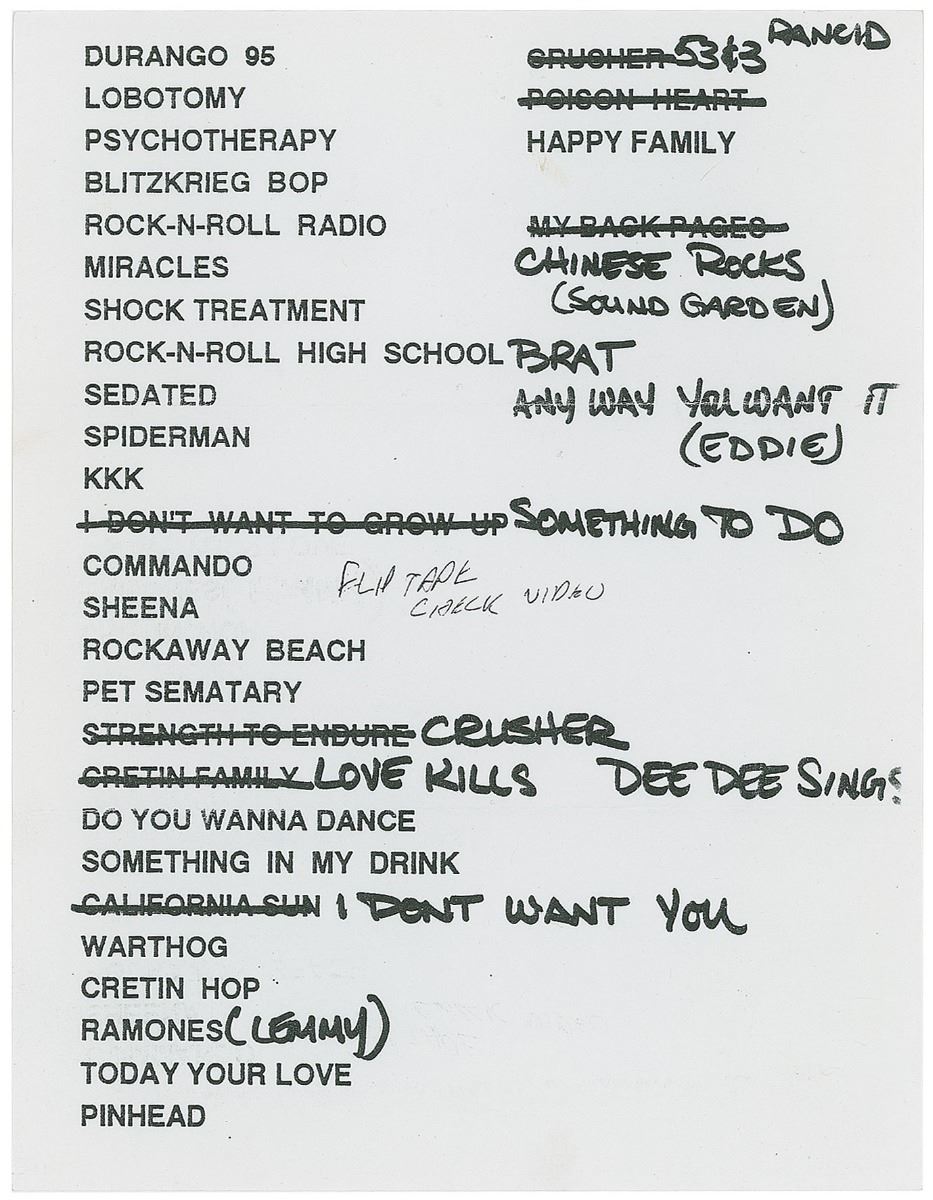 DURANGO 95
LOBOTOMY
PSYCHOTHERAPY
BLITZKRIEG BOP
ROCK-N-ROLL RADIO
MIRACLES
SHOCK TREATMENT
ROCK-N-ROLL HIGH SCHOOL
SEDATED
SPIDERMAN
KKK
I DON'T WANT TO GROW UP SOMETHING TO DO
COMMANDO
SHEENA
FLIP TAPE
CHECK VIDEO
ROCKAWAY BEACH
PET SEMATARY
STRENGTH TO ENDURE CRUSHER
CRETIN FAMILY LOVE KILLS DEE DEE SINGS
DO YOU WANNA DANCE
SOMETHING IN MY DRINK
CALIFORNIA SUN I DONT WANT YOU
WARTHOG
CRETIN HOP
RAMONES (LEMMY)
TODAY YOUR LOVE
PINHEAD
CRUSHER 53&3 RANCID
POISON HEART
HAPPY FAMILY
MY BACK PAGES
CHINESE ROCKS
(SOUND GARDEN)
BRAT
ANY WAY YOU WANT IT
(EDDIE)